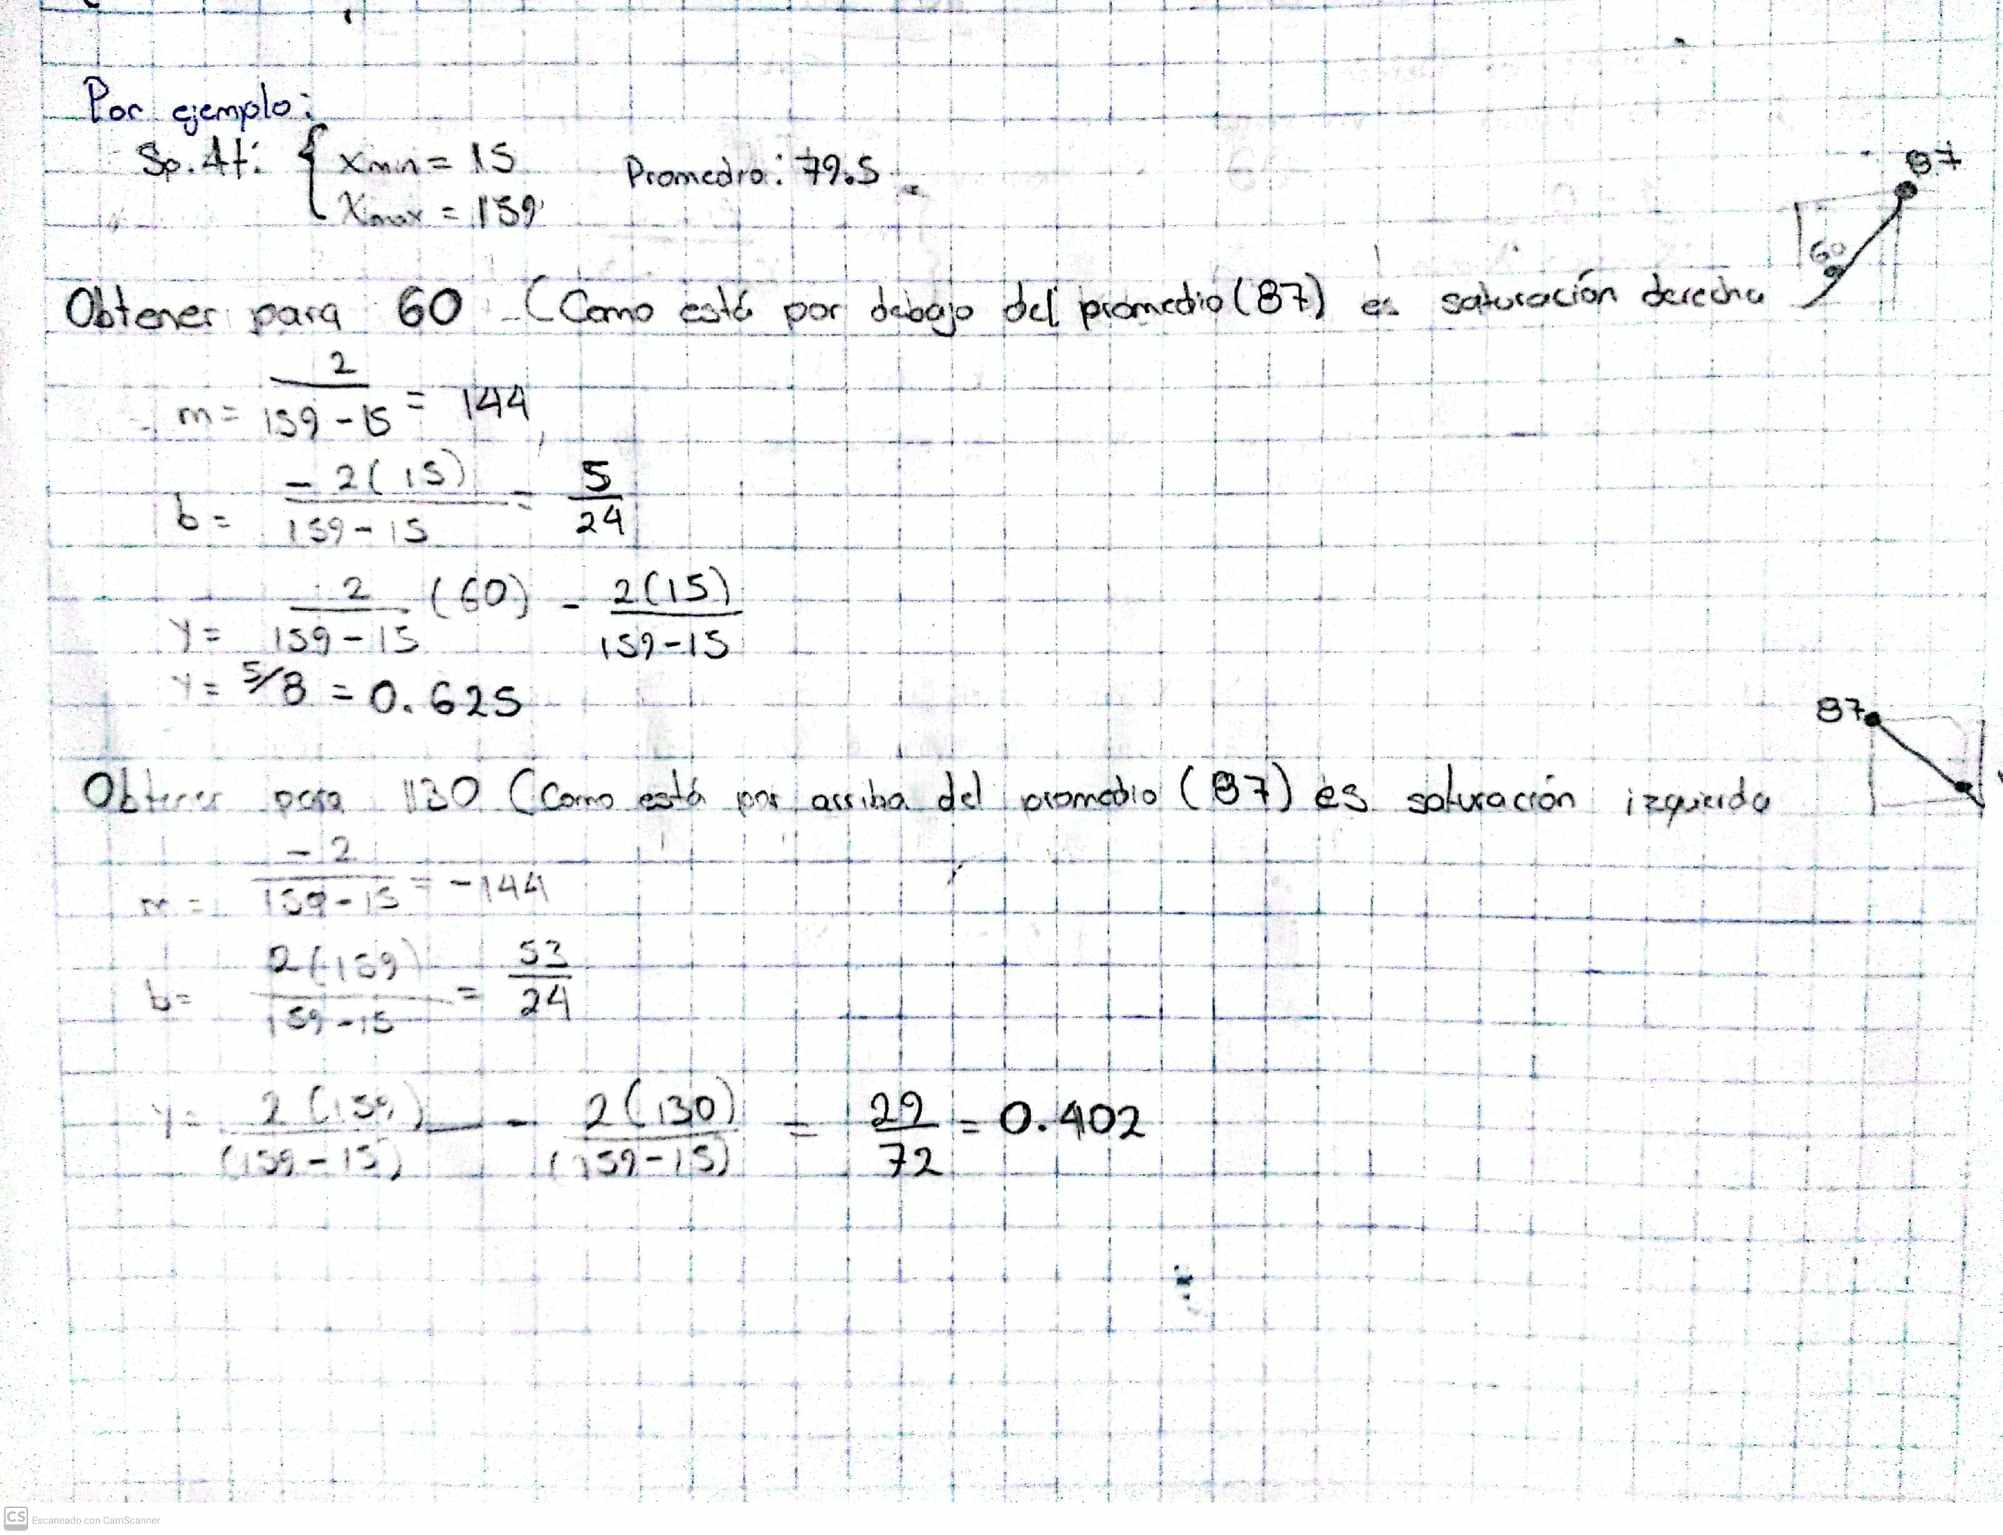 Por ejemplo:
Sp. At: { Xmin = 15 Promedio: 79.5
Xmax = 159
87
60
Obtener para 60 (Como está por debajo del promedio (87) es saturación derecha
m = 2 / 159 - 15 = 144
b = - 2(15) / 159 - 15 = 5 / 24
y = 2 / 159 - 15 (60) - 2(15) / 159 - 15
y = 5/8 = 0.625
87
Obtener para 130 (Como está por arriba del promedio (87) es saturación izquierda
m = - 2 / 159 - 15 = -144
b = 2(159) / 159 - 15 = 53 / 24
y = 2(159) / (159 - 15) - 2(130) / (159 - 15) = 29 / 72 = 0.402
CS Escaneado con CamScanner